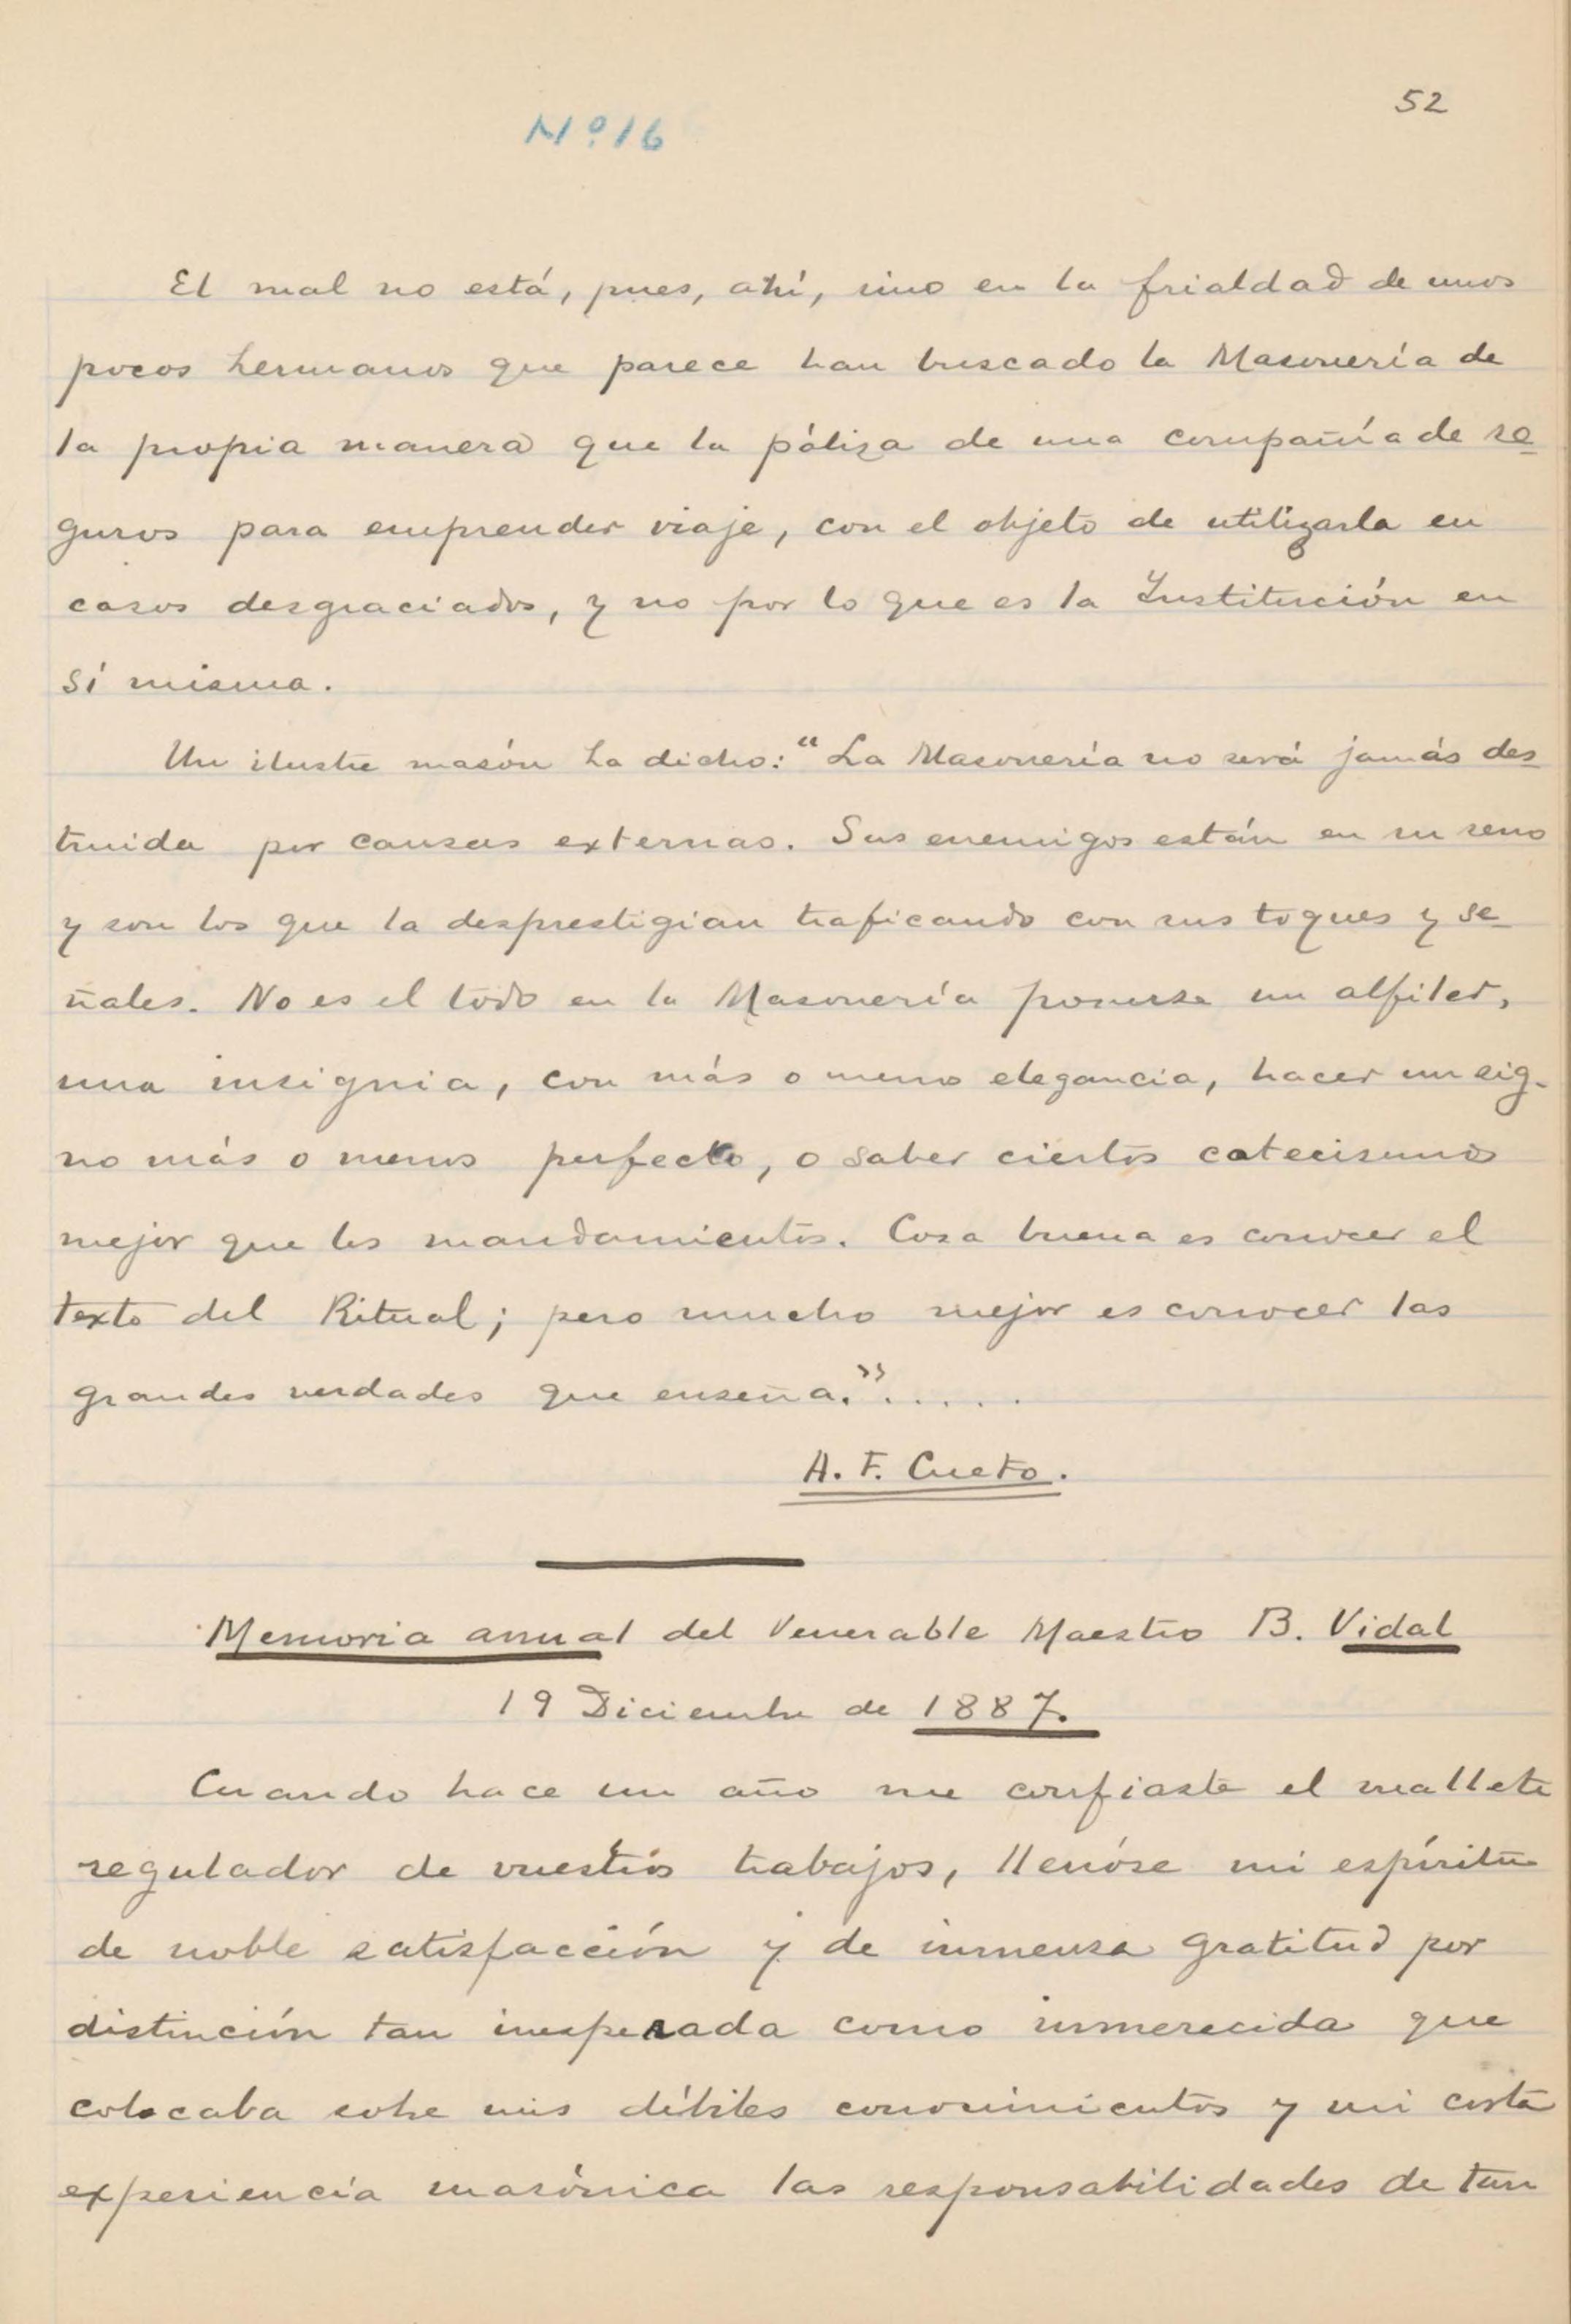 52
Nº 16
El mal no está, pues, ahí, sino en la frialdad de unos
pocos hermanos que parece han buscado la Masonería de
la propia manera que la póliza de una compañía de se
guros para emprender viaje, con el objeto de utilizarla en
casos desgraciados, y no por lo que es la Institución en
sí misma.
Un ilustre masón ha dicho: "La Masonería no será jamás des
truida por causas externas. Sus enemigos están en su seno
y son los que la desprestigian traficando con sus toques y se
ñales. No es el todo en la Masonería ponerse un alfiler,
una insignia, con más o menos elegancia, hacer un sig-
no más o menos perfecto, o saber ciertos catecismos
mejor que los mandamientos. Cosa buena es conocer el
texto del Ritual; pero mucho mejor es conocer las
grandes verdades que enseña.".....
A. F. Cueto.
Memoria anual del Venerable Maestro B. Vidal
19 Diciembre de 1887.
Cuando hace un año me confiaste el mallete
regulador de vuestros trabajos, llenóse mi espíritu
de noble satisfacción y de inmensa gratitud por
distinción tan inesperada como inmerecida que
colocaba sobre mis débiles conocimientos y mi corta
experiencia masónica las responsabilidades de tan